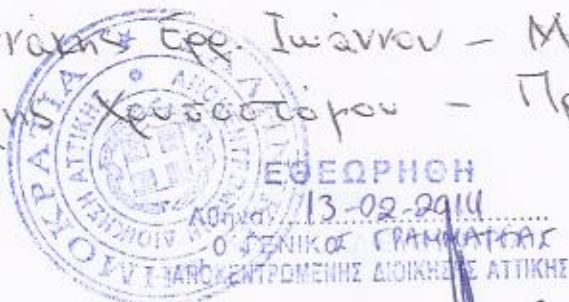 Ερρ. Ιωάννου – Μ
Χρυσοστόμου – Πρ
ΕΘΕΩΡΗΘΗ
Αθήνα 13-02-2014
Ο ΓΕΝΙΚΟΣ ΓΡΑΜΜΑΤΕΑΣ
ΑΠΟΚΕΝΤΡΩΜΕΝΗΣ ΔΙΟΙΚΗΣΗΣ ΑΤΤΙΚΗΣ